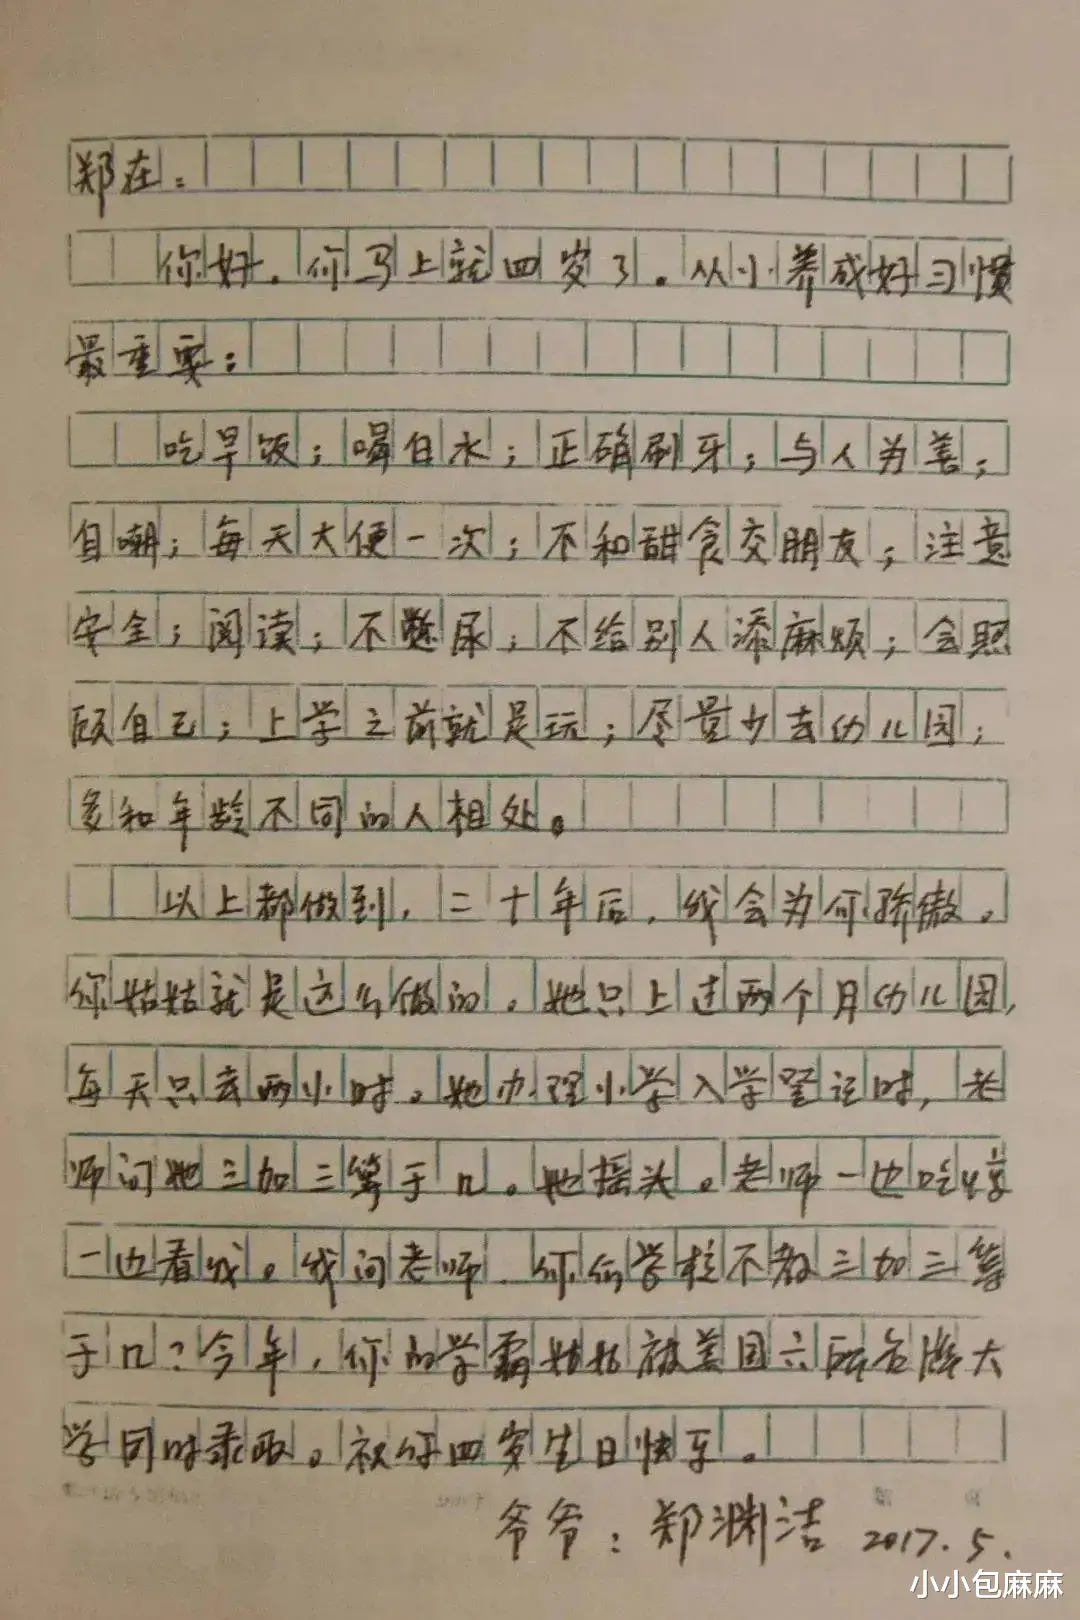 郑在：
你好。你马上就四岁了。从小养成好习惯
最重要：
吃早饭；喝白水；正确刷牙；与人为善；
自嘲；每天大便一次；不和甜食交朋友；注意
安全；阅读；不憋尿；不给别人添麻烦；会照
顾自己；上学之前就是玩；尽量少去幼儿园；
多和年龄不同的人相处。
以上都做到，二十年后，我会为你骄傲。
你姑姑就是这么做的。她只上过两个月幼儿园，
每天只去两小时。她办理小学入学登记时，老
师问她三加三等于几。她摇头。老师一边吃惊
一边看我。我问老师，你们学校不教三加三等
于几？今年，你的学霸姑姑被美国六所名牌大
学同时录取。祝你四岁生日快乐。
爷爷：郑渊洁 2017.5.
小小包麻麻